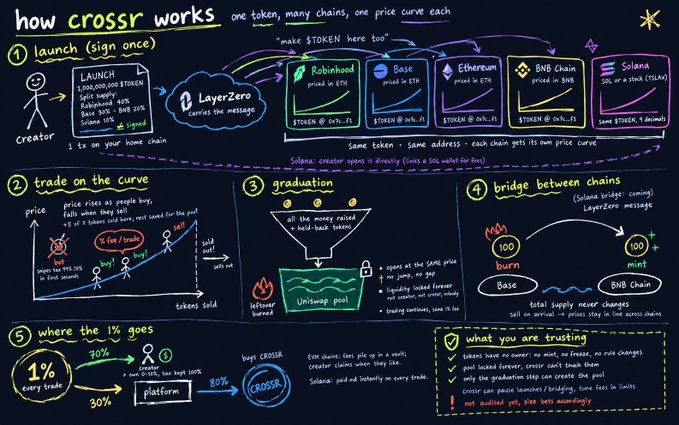 how crossr works
one token, many chains, one price curve each
1 launch (sign once)
"make $TOKEN here too"
creator
LAUNCH
1,000,000,000 $TOKEN
Split supply:
Robinhood 40%
Base 30% · BNB 20%
Solana 10%
✓ signed
1 tx on your home chain
LayerZero
carries the message
Robinhood
priced in ETH
$TOKEN @ 0x7c...f1
Base
priced in ETH
$TOKEN @ 0x7c...f1
Ethereum
priced in ETH
$TOKEN @ 0x7c...f1
BNB Chain
priced in BNB
$TOKEN @ 0x7c...f1
Solana
SOL or a stock (TSLAx)
same $TOKEN, 9 decimals
Same token · same address · each chain gets its own price curve
Solana: creator opens it directly (links a SOL wallet for fees)
2 trade on the curve
price
price rises as people buy,
falls when they sell
5 of 7 tokens sold here, rest saved for the pool
bot
snipes tax
in first seconds
% fee / trade
buy!
buy!
sell!
sold
out!
sells out
tokens sold
3 graduation
all the money raised
+ held-back tokens
leftover
burned
Uniswap pool
• opens at the SAME price
no jump, no gap
• liquidity locked forever
not creator, not crossr, nobody
• trading continues, same 1% fee
4 bridge between chains
(Solana bridge: coming)
LayerZero message
100
burn
Base
100
mint
BNB Chain
total supply never changes
sell on arrival → prices stay in line across chains
5 where the 1% goes
1%
every trade
70%
creator
+ own 0-50%, tax kept 100%
30%
platform
80%
buys CROSSR
CROSSR
EVM chains: fees pile up in a vault;
creator claims when they like.
Solana: paid out instantly on every trade.
what you are trusting
✓ tokens have no owner: no mint, no freeze, no rule changes
✓ pool locked forever, crossr can't touch them
✓ only the graduation step can create the pool
crossr can pause launches/bridging, tune fees in limits
! not audited yet, size bets accordingly